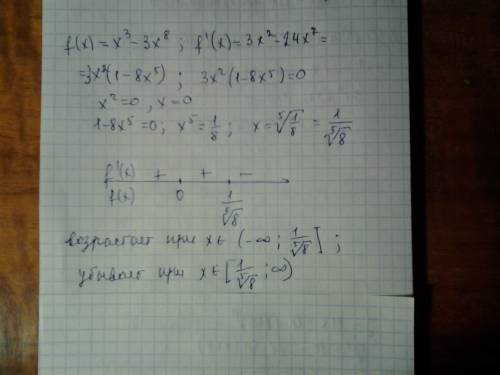 f(x) = x³ - 3x⁸ ; f'(x) = 3x² - 24x⁷ =
= 3x²(1 - 8x⁵) ; 3x²(1 - 8x⁵) = 0
x² = 0 , x = 0
1 - 8x⁵ = 0 ; x⁵ = 1/8 ; x = ⁵√(1/8) = 1/⁵√8
f'(x) + + -
f(x) 0 1/⁵√8
возрастает при x ∈ (-∞ ; 1/⁵√8] ;
убывает при x ∈ [1/⁵√8 ; ∞)